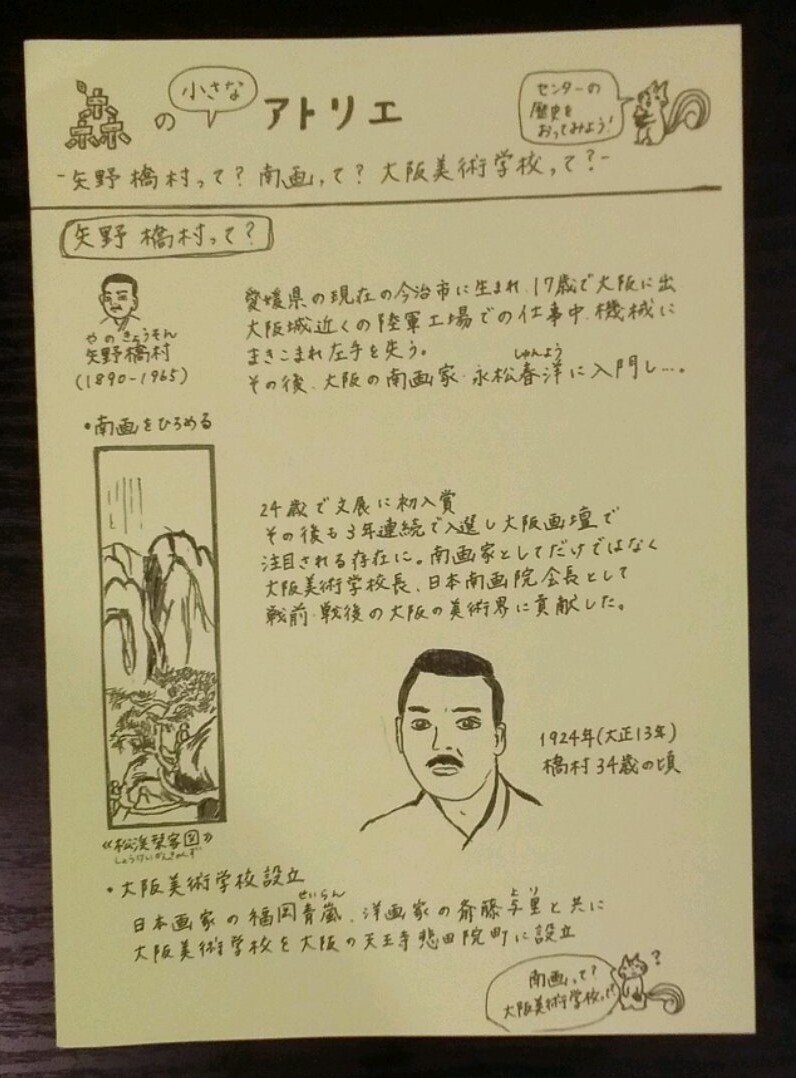 森の小さなアトリエ
センターの
歴史を
おってみよう!
-矢野橋村って?南画って?大阪美術学校って?-
矢野橋村って?
やの きょうそん
矢野橋村
(1890-1965)
愛媛県の現在の今治市に生まれ、17歳で大阪に出
大阪城近くの陸軍工場での仕事中、機械に
まきこまれ左手を失う。
しゅんよう
その後、大阪の南画家・永松春洋に入門し…。
・南画をひろめる
24歳で文展に初入賞
その後も3年連続で入選し大阪画壇で
注目される存在に。南画家としてだけではなく
大阪美術学校長、日本南画院会長として
戦前・戦後の大阪の美術界に貢献した。
1924年(大正13年)
橋村34歳の頃
《松渓琹客図》
しょうけいかんきゃくず
・大阪美術学校設立
せいらん
より
日本画家の福岡青嵐、洋画家の斎藤与里と共に
大阪美術学校を大阪の天王寺悲田院町に設立
南画って?
大阪美術学校って!?
?